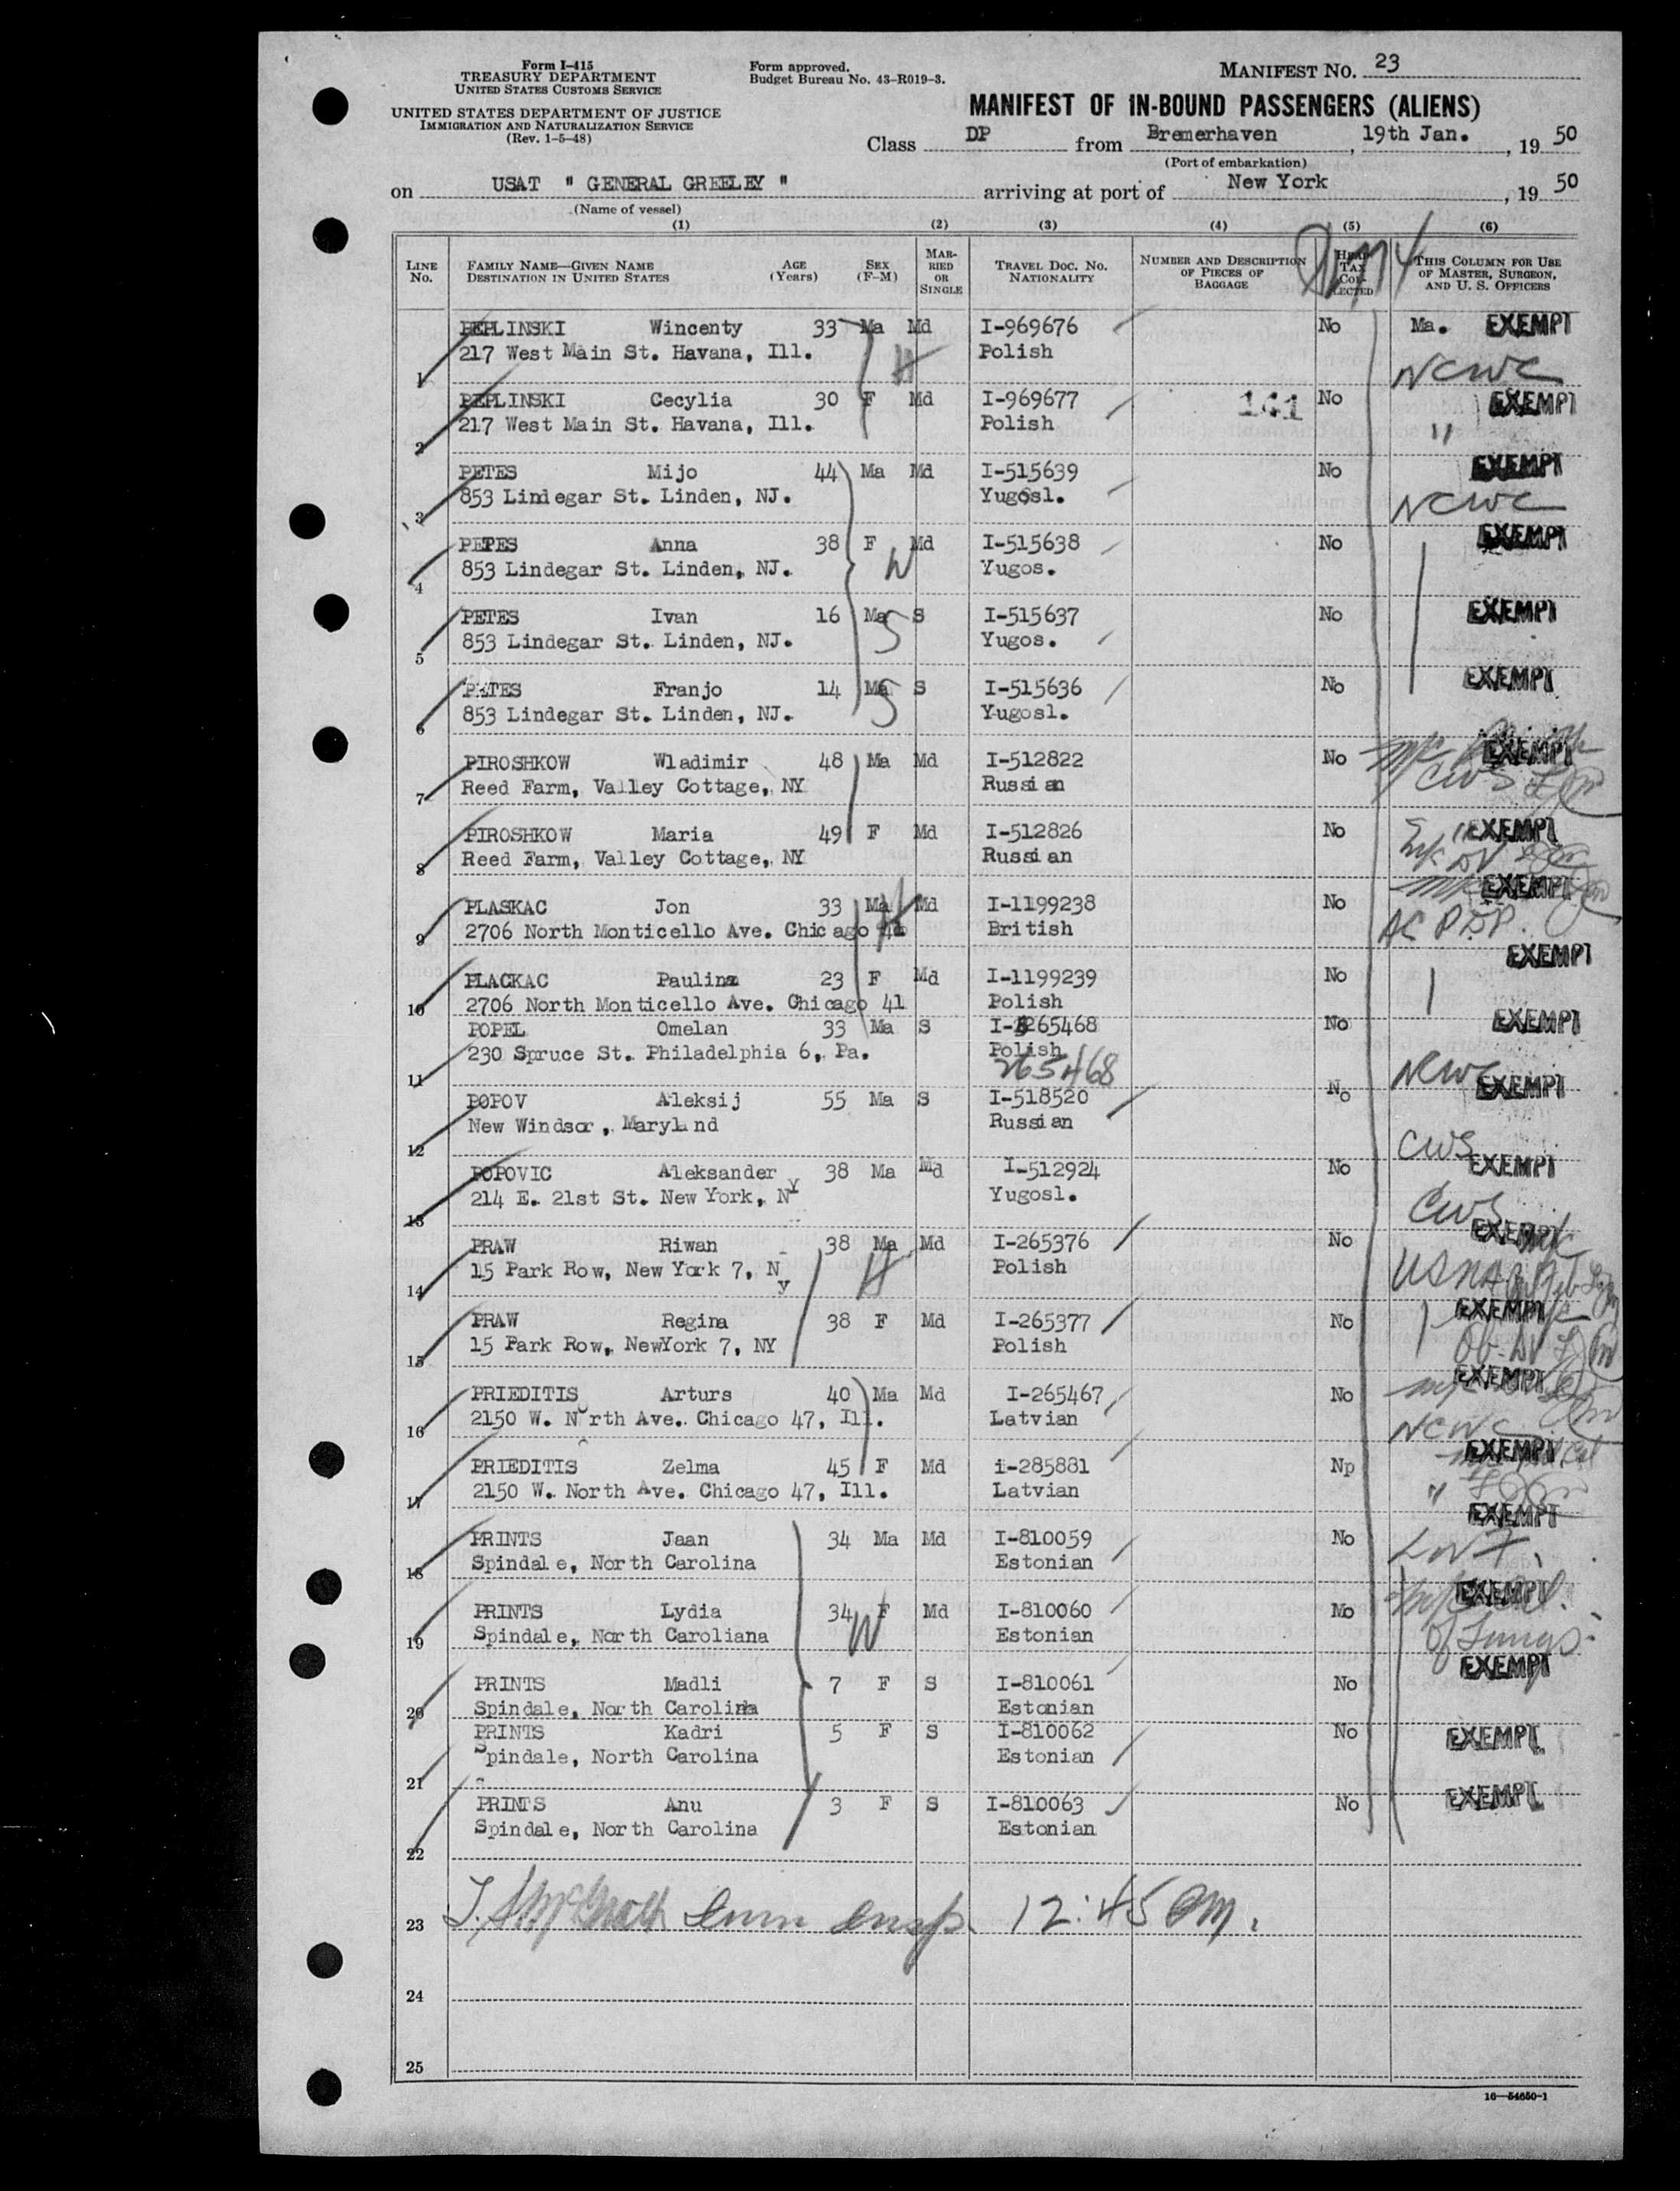 Form I-415
TREASURY DEPARTMENT
UNITED STATES CUSTOMS SERVICE
UNITED STATES DEPARTMENT OF JUSTICE
IMMIGRATION AND NATURALIZATION SERVICE
(Rev. 1-5-48)
Form approved.
Budget Bureau No. 43-R019-3.
MANIFEST NO. 23
MANIFEST OF IN-BOUND PASSENGERS (ALIENS)
Class DP from Bremerhaven, 19th Jan., 19 50
(Port of embarkation)
on USAT " GENERAL GREELEY " arriving at port of New York, 19 50
(Name of vessel)
(1) (2) (3) (4) (5) (6)
LINE No. FAMILY NAME—GIVEN NAME DESTINATION IN UNITED STATES AGE (Years) SEX (F-M) MARRIED OR SINGLE TRAVEL DOC. NO. NATIONALITY NUMBER AND DESCRIPTION OF PIECES OF BAGGAGE HEAD TAX COLLECTED THIS COLUMN FOR USE OF MASTER, SURGEON, AND U. S. OFFICERS
PEPLINSKI Wincenty 33 Ma Md I-969676 No Ma. EXEMPT
217 West Main St. Havana, Ill. H Polish
1 NCWC
PEPLINSKI Cecylia 30 F Md I-969677 141 No EXEMPT
217 West Main St. Havana, Ill. Polish "
2
PETES Mijo 44 Ma Md I-515639 No EXEMPT
853 Lindegar St. Linden, NJ. Yugosl. NCWC
3
PETES Anna 38 F Md I-515638 No EXEMPT
853 Lindegar St. Linden, NJ. W Yugos.
4
PETES Ivan 16 Ma S I-515637 No EXEMPT
853 Lindegar St. Linden, NJ. S Yugos.
5
PETES Franjo 14 Ma S I-515636 No EXEMPT
853 Lindegar St. Linden, NJ. S Yugosl.
6
PIROSHKOW Wladimir 48 Ma Md I-512822 No EXEMPT
Reed Farm, Valley Cottage, NY Russian CWS
7
PIROSHKOW Maria 49 F Md I-512826 No EXEMPT
Reed Farm, Valley Cottage, NY Russian
8
PLASKAC Jon 33 Ma Md I-1199238 No EXEMPT
2706 North Monticello Ave. Chicago 41 H British
9
PLACKAC Paulina 23 F Md I-1199239 No EXEMPT
2706 North Monticello Ave. Chicago 41 Polish
10
POPEL Omelan 33 Ma S I-265468 No EXEMPT
230 Spruce St. Philadelphia 6, Pa. Polish
11 265468 NCWC
POPOV Aleksij 55 Ma S I-518520 No EXEMPT
New Windsor, Marylnd Russian
12 CWS
POPOVIC Aleksander 38 Ma Md I-512924 No EXEMPT
214 E. 21st St. New York, NY Yugosl.
13 CWS
PRAW Riwan 38 Ma Md I-265376 No EXEMPT
15 Park Row, New York 7, Ny H Polish USNA
14
PRAW Regina 38 F Md I-265377 No EXEMPT
15 Park Row, NewYork 7, NY Polish
15
PRIEDITIS Arturs 40 Ma Md I-265467 No EXEMPT
2150 W. North Ave. Chicago 47, Ill. Latvian
16 NCWC
PRIEDITIS Zelma 45 F Md i-285881 Np EXEMPT
2150 W. North Ave. Chicago 47, Ill. Latvian "
17
PRINTS Jaan 34 Ma Md I-810059 No EXEMPT
Spindale, North Carolina Estonian LWF
18
PRINTS Lydia 34 F Md I-810060 Mo EXEMPT
Spindale, North Caroliana W Estonian of Lungs
19
PRINTS Madli 7 F S I-810061 No EXEMPT
Spindale, North Carolina Estonian
20
PRINTS Kadri 5 F S I-810062 No EXEMPT
Spindale, North Carolina Estonian
21
PRINTS Anu 3 F S I-810063 No EXEMPT
Spindale, North Carolina Estonian
22
23 Imm Insp. 12:45 PM.
24
25
16—54650-1